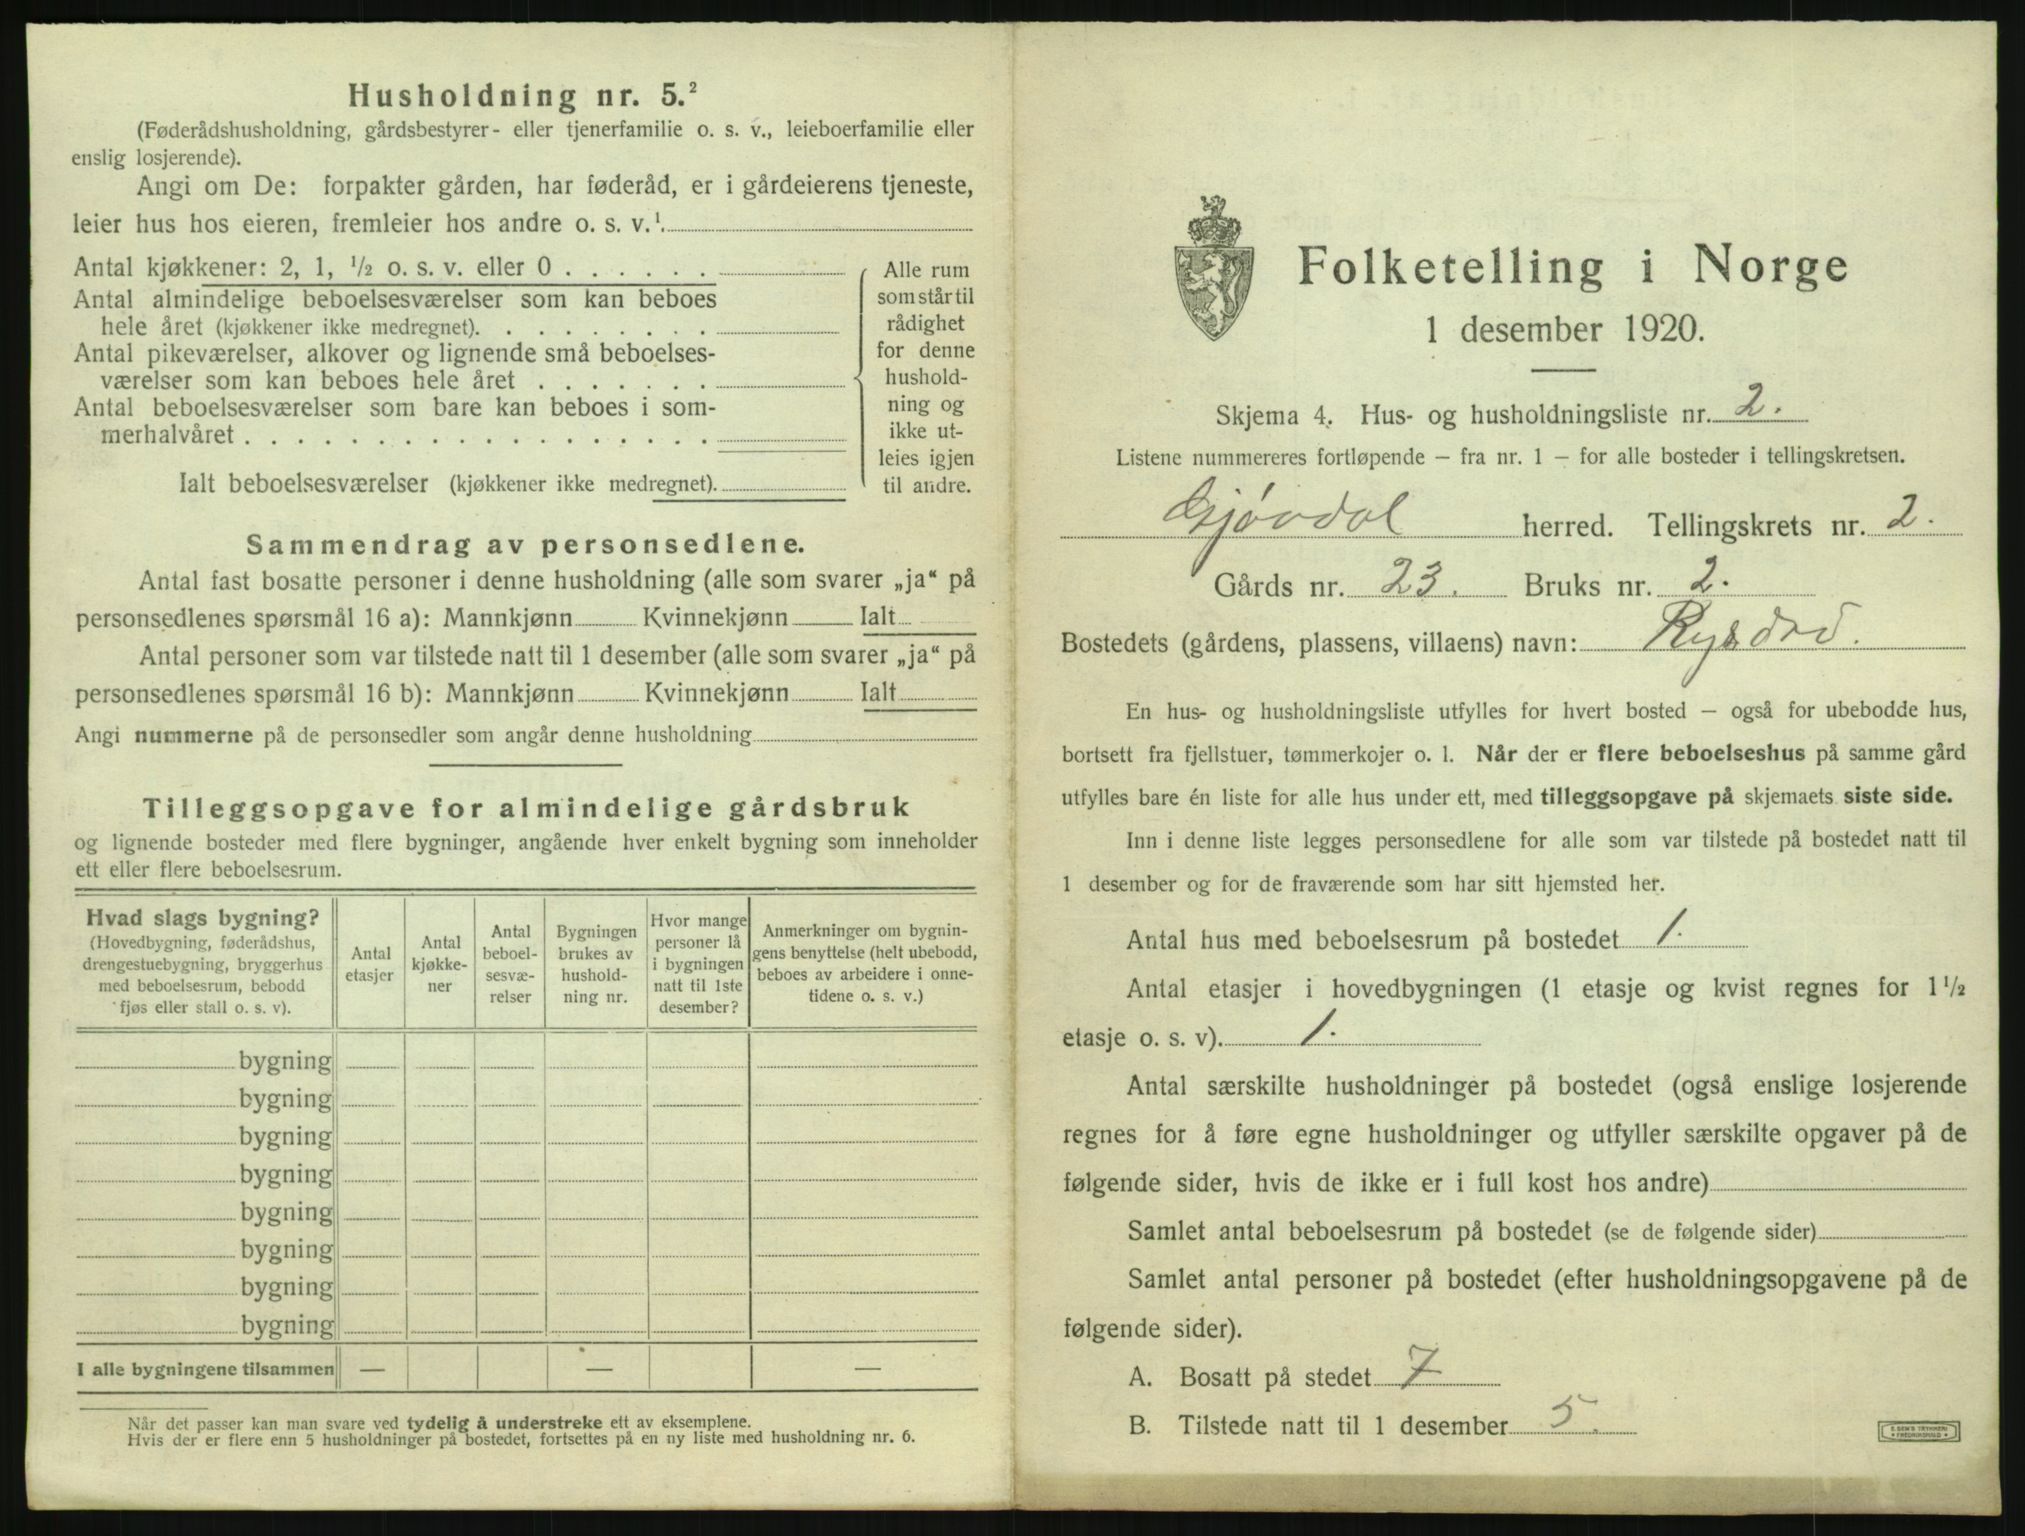 Husholdning nr. 5.²
(Føderådshusholdning, gårdsbestyrer- eller tjenerfamilie o. s. v., leieboerfamilie eller
enslig losjerende).
Angi om De: forpakter gården, har føderåd, er i gårdeierens tjeneste,
leier hus hos eieren, fremleier hos andre o. s. v.¹.
Antal kjøkkener: 2, 1, ½ o. s. v. eller 0 . . . . . .
Antal almindelige beboelsesværelser som kan beboes
hele året (kjøkkener ikke medregnet). . . . . . . . .
Antal pikeværelser, alkover og lignende små beboelses-
værelser som kan beboes hele året . . . . . . .
Antal beboelsesværelser som bare kan beboes i som-
merhalvåret . . . . . . . . . . . . . . . . . .
Ialt beboelsesværelser (kjøkkener ikke medregnet).
Alle rum
som står til
rådighet
for denne
hushold-
ning og
ikke ut-
leies igjen
til andre.
Sammendrag av personsedlene.
Antal fast bosatte personer i denne husholdning (alle som svarer „ja“ på
personsedlenes spørsmål 16 a): Mannkjønn Kvinnekjønn Ialt
Antal personer som var tilstede natt til 1 desember (alle som svarer „ja“ på
personsedlenes spørsmål 16 b): Mannkjønn Kvinnekjønn Ialt
Angi nummerne på de personsedler som angår denne husholdning
Tilleggsopgave for almindelige gårdsbruk
og lignende bosteder med flere bygninger, angående hver enkelt bygning som inneholder
ett eller flere beboelsesrum.
Hvad slags bygning?
(Hovedbygning, føderådshus,
drengestuebygning, bryggerhus
med beboelsesrum, bebodd
fjøs eller stall o. s. v).
Antal
etasjer
Antal
kjøkke-
ner
Antal
beboel-
sesvæ-
relser
Bygningen
brukes av
hushold-
ning nr.
Hvor mange
personer lå
i bygningen
natt til 1ste
desember?
Anmerkninger om bygnin-
gens benyttelse (helt ubebodd,
beboes av arbeidere i onne-
tidene o. s. v.)
bygning
bygning
bygning
bygning
bygning
bygning
bygning
bygning
I alle bygningene tilsammen — — —
Når det passer kan man svare ved tydelig å understreke ett av eksemplene.
Hvis der er flere enn 5 husholdninger på bostedet, fortsettes på en ny liste med husholdning nr. 6.
Folketelling i Norge
1 desember 1920.
Skjema 4. Hus- og husholdningsliste nr. 2.
Listene nummereres fortløpende – fra nr. 1 – for alle bosteder i tellingskretsen.
Gjøvdal herred. Tellingskrets nr. 2.
Gårds nr. 23. Bruks nr. 2.
Bostedets (gårdens, plassens, villaens) navn:
En hus- og husholdningsliste utfylles for hvert bosted – også for ubebodde hus,
bortsett fra fjellstuer, tømmerkojer o. l. Når der er flere beboelseshus på samme gård
utfylles bare én liste for alle hus under ett, med tilleggsopgave på skjemaets siste side.
Inn i denne liste legges personsedlene for alle som var tilstede på bostedet natt til
1 desember og for de fraværende som har sitt hjemsted her.
Antal hus med beboelsesrum på bostedet 1.
Antal etasjer i hovedbygningen (1 etasje og kvist regnes for 1½
etasje o. s. v). 1.
Antal særskilte husholdninger på bostedet (også enslige losjerende
regnes for å føre egne husholdninger og utfyller særskilte opgaver på de
følgende sider, hvis de ikke er i full kost hos andre)
Samlet antal beboelsesrum på bostedet (se de følgende sider)
Samlet antal personer på bostedet (efter husholdningsopgavene på de
følgende sider).
A. Bosatt på stedet 7
B. Tilstede natt til 1 desember 5.